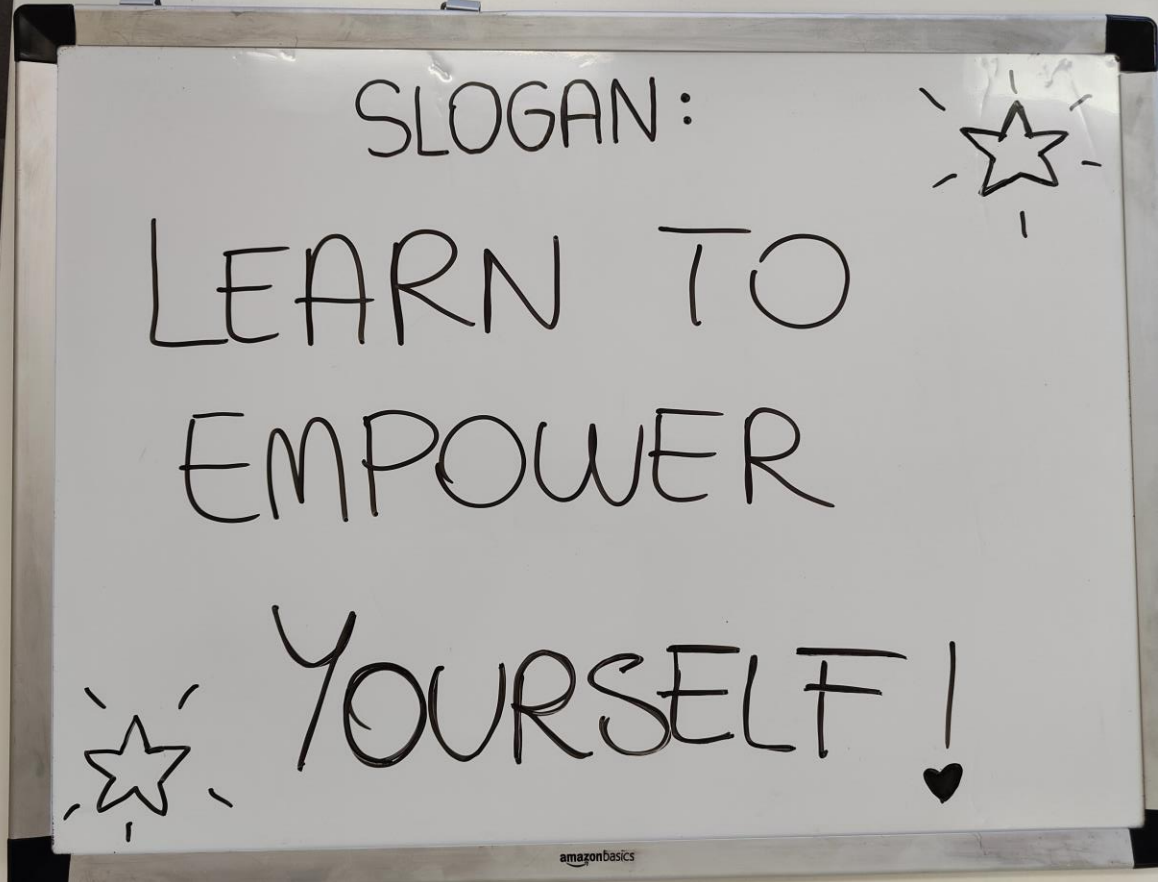 SLOGAN:
LEARN TO
EMPOWER
YOURSELF!
amazonbasics